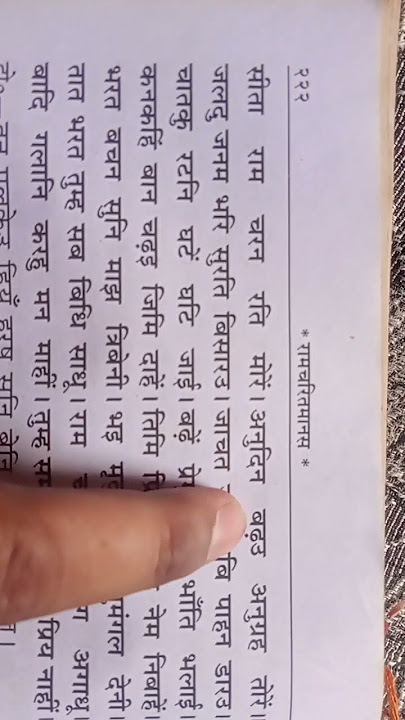 २२२ * रामचरितमानस *
सीता राम चरन रति मोरें। अनुदिन बढ़उ अनुग्रह तोरें।
जलदु जनम भरि सुरति बिसारउ। जाचत पाहन डारउ।
चातकु रटनि घटें घटि जाई। बढ़ें भाँति भलाई।
कनकहिं बान चढ़इ जिमि दाहें। तिमि नेम निबाहें।
भरत बचन सुनि माझ त्रिबेनी। भइ देनी।
तात भरत तुम्ह सब बिधि साधू। राम अगाधू।
बादि गलानि करहु मन माहीं। तुम्ह प्रिय नाहीं।
हियँ हरषु सुनि बेनि